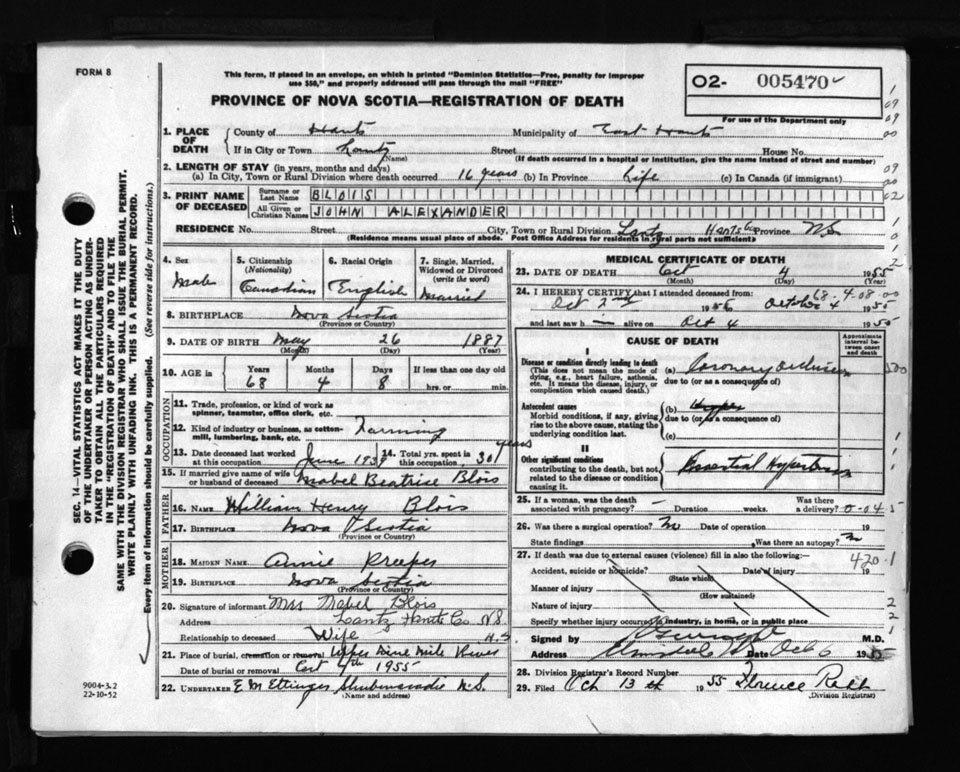 FORM 8
This form, if placed in an envelope, on which is printed "Dominion Statistics—Free, penalty for improper
use $50," and properly addressed will pass through the mail "FREE"
PROVINCE OF NOVA SCOTIA—REGISTRATION OF DEATH
O2- 005470
For use of the Department only
SEC. 14—VITAL STATISTICS ACT MAKES IT THE DUTY
OF THE UNDERTAKER OR PERSON ACTING AS UNDER-
TAKER TO OBTAIN ALL THE PARTICULARS REQUIRED
IN THE "REGISTRATION OF DEATH" AND TO FILE THE
SAME WITH THE DIVISION REGISTRAR WHO SHALL ISSUE THE BURIAL PERMIT.
WRITE PLAINLY WITH UNFADING INK. THIS IS A PERMANENT RECORD.
Every item of information should be carefully supplied. (See reverse side for instructions.)
1. PLACE OF DEATH
County of Hants Municipality of East Hants
If in City or Town Lantz Street House No.
(Name) (If death occurred in a hospital or institution, give the name instead of street and number)
2. LENGTH OF STAY (in years, months and days)
(a) In City, Town or Rural Division where death occurred 16 years (b) In Province Life (c) In Canada (if immigrant)
3. PRINT NAME OF DECEASED
Surname or Last Name BLOIS
All Given or Christian Names JOHN ALEXANDER
RESIDENCE No. Street City, Town or Rural Division Lantz Hants Co Province N.S
(Residence means usual place of abode. Post Office Address for residents in rural parts not sufficient)
4. Sex Male
5. Citizenship (Nationality) Canadian
6. Racial Origin English
7. Single, Married, Widowed or Divorced (write the word) Married
8. BIRTHPLACE Nova Scotia
(Province or Country)
9. DATE OF BIRTH May 26 1887
(Month) (Day) (Year)
10. AGE in Years Months Days If less than one day old
68 4 8 hrs. or min.
OCCUPATION
11. Trade, profession, or kind of work as
spinner, teamster, office clerk, etc.
12. Kind of industry or business, as cotton-
mill, lumbering, bank, etc. Farming
13. Date deceased last worked at this occupation June 1939
14. Total yrs. spent in this occupation 30 years
15. If married give name of wife
or husband of deceased Mabel Beatrice Blois
FATHER
16. NAME William Henry Blois
17. BIRTHPLACE Nova Scotia
(Province or Country)
MOTHER
18. MAIDEN NAME Annie Preeper
19. BIRTHPLACE Nova Scotia
(Province or Country)
20. Signature of informant Mrs Mabel Blois
Address Lantz Hants Co NS.
Relationship to deceased Wife N.S.
21. Place of burial, cremation or removal Upper Nine Mile River
Date of burial or removal Oct 1955
22. UNDERTAKER E M Ettinger Shubenacadie N.S.
(Name and address)
9004-3.2
22-10-52
MEDICAL CERTIFICATE OF DEATH
23. DATE OF DEATH Oct 4 1955
(Month) (Day) (Year)
24. I HEREBY CERTIFY that I attended deceased from:
68-4-08-00
Oct 2nd 1955 to October 4 1955
and last saw h alive on Oct 4 1955
CAUSE OF DEATH
Approximate interval between onset and death
I
Disease or condition directly leading to death
(This does not mean the mode of
dying, e.g., heart failure, asthenia,
etc. It means the disease, injury, or
complication which caused death.)
(a) Coronary occlusion
due to (or as a consequence of)
Antecedent causes
Morbid conditions, if any, giving
rise to the above cause, stating the
underlying condition last.
(b)
due to (or as a consequence of)
(c)
II
Other significant conditions
contributing to the death, but not
related to the disease or condition
causing it.
Essential Hypertension
25. If a woman, was the death
associated with pregnancy? — Duration weeks. Was there a delivery?
0-04-5
26. Was there a surgical operation? No Date of operation 19
State findings Was there an autopsy? No
27. If death was due to external causes (violence) fill in also the following:
420-1
Accident, suicide or homicide? Date of injury 19
(State which)
Manner of injury
(How sustained)
Nature of injury
Specify whether injury occurred in industry, in home, or in public place
Signed by M.D.
Address Elmsdale Date Oct 6 1955
28. Division Registrar's Record Number
29. Filed Oct 13 th 1955 Florence
(Division Registrar)